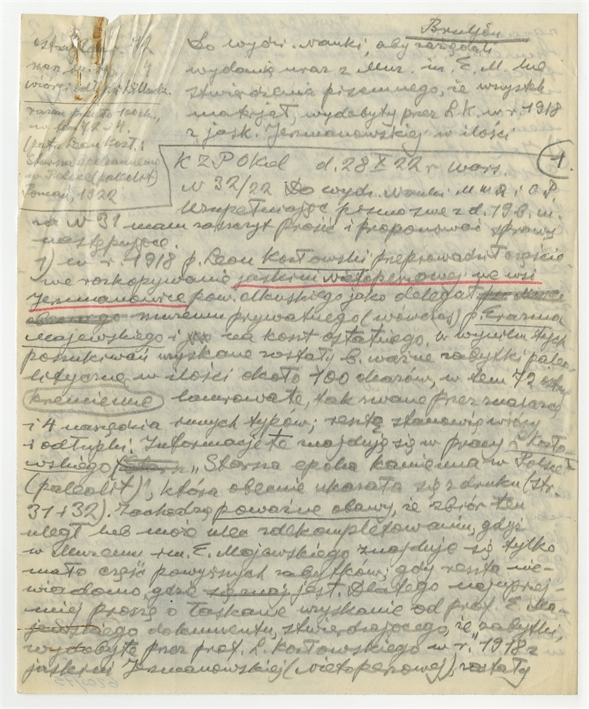 Brulion
Do wydz. Nauki, aby zarządali
wydania wraz z Muz. im. E. M.
stwierdzenia pisemnego, że wszystek
materjał, wydobyty przez L. K. w r. 1918
z jask. Jermanowskiej w ilości
w 42-4
(patrz Leon Kozł.:
Starsza epoka kamienna
w Polsce (paleolit)
Poznań, 1922
1.
K Z P O K d d. 28 X 22 r Warsz.
N 32/22 Do wydz. Nauki M W R i O P.
Uzupełniając pismo swe z d. 19 b. m.
za N 31 mam zaszczyt prosić i proponować sprawy
następujące.
1) w r. 1918 p. Leon Kozłowski przeprowadził częścio-
we rozkopywanie jaskini nietoperzowej we wsi
Jermanowice pow. olkuskiego jako delegat
muzeum prywatnego (wówczas) p. Erazma
Majewskiego i na koszt ostatniego, w wyniku tych
poszukiwań uzyskane zostały b. ważne zabytki paleo-
lityczne w ilości około 100 okazów, w tem 72
krzemienne laurowate, tak zwane przez znalazcę
i 4 narzędzia innych typów; resztę stanowią wióry
i odłupki. Informacje te znajdują się w pracy L. Kozło-
wskiego "Starsza epoka kamienna w Polsce
(paleolit)", która obecnie ukazała się z druku (str.
31 i 32). Zachodzą poważne obawy, że zbiór ten
uległ lub może ulec zdekompletowaniu, gdyż
w Muzeum im. E. Majewskiego znajduje się tylko
mała część powyższych zabytków, gdy reszta nie-
wiadomo, gdzie jest. Dlatego najuprzej-
miej proszę o łaskawe uzyskanie od prof. E. Ma-
jewskiego dokumentu, stwierdzającego, że zabytki,
wydobyte przez prof. L. Kozłowskiego w r. 1918 z
jaskini Jermanowskiej (nietoperzowej), zostały